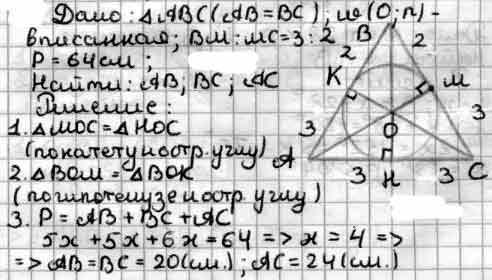 Дано: △ABC (AB=BC); ω(O; r) -
вписанная; BM:MC=3:2
P = 64 см;
Найти: AB; BC; AC
Решение:
1. △MOC = △HOC
(по катету и остр. углу)
2. △BOM = △BOK
(по гипотенузе и остр. углу)
3. P = AB + BC + AC
5x + 5x + 6x = 64 => x = 4 =>
=> AB = BC = 20 (см.); AC = 24 (см.)
B
2
2
K
M
3
3
O
r
A
3
H
3
C